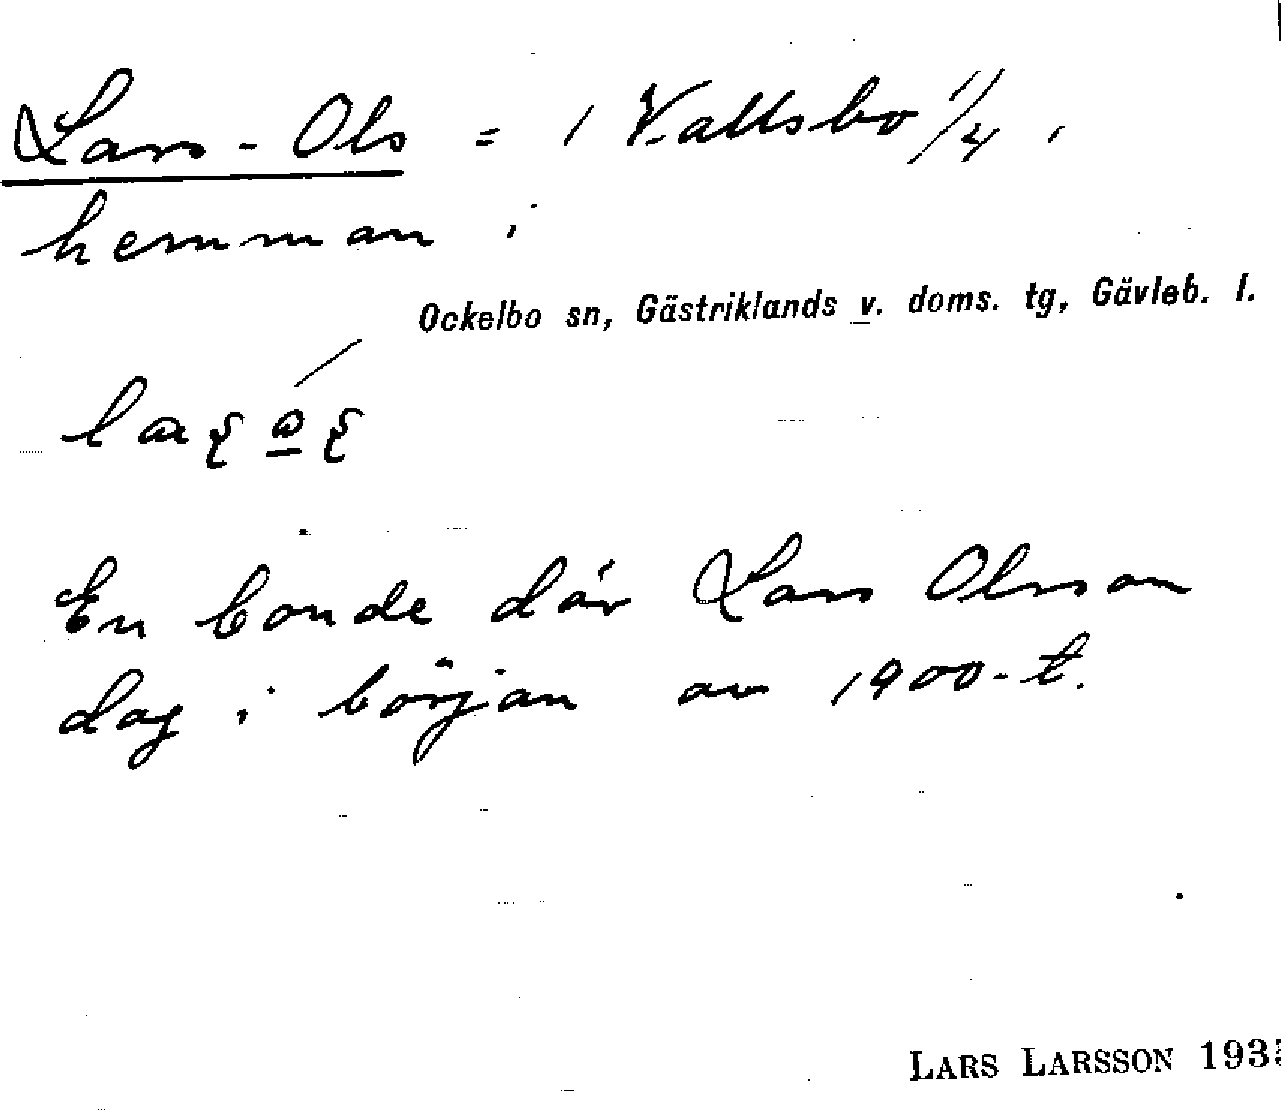 Lars-Ols = 1 Vallsbo 1/4,
hemman i
Ockelbo sn, Gästriklands v. doms. tg, Gävleb. l.
En bonde där Lars Olsson
dog i början av 1900-t.
LARS LARSSON 193